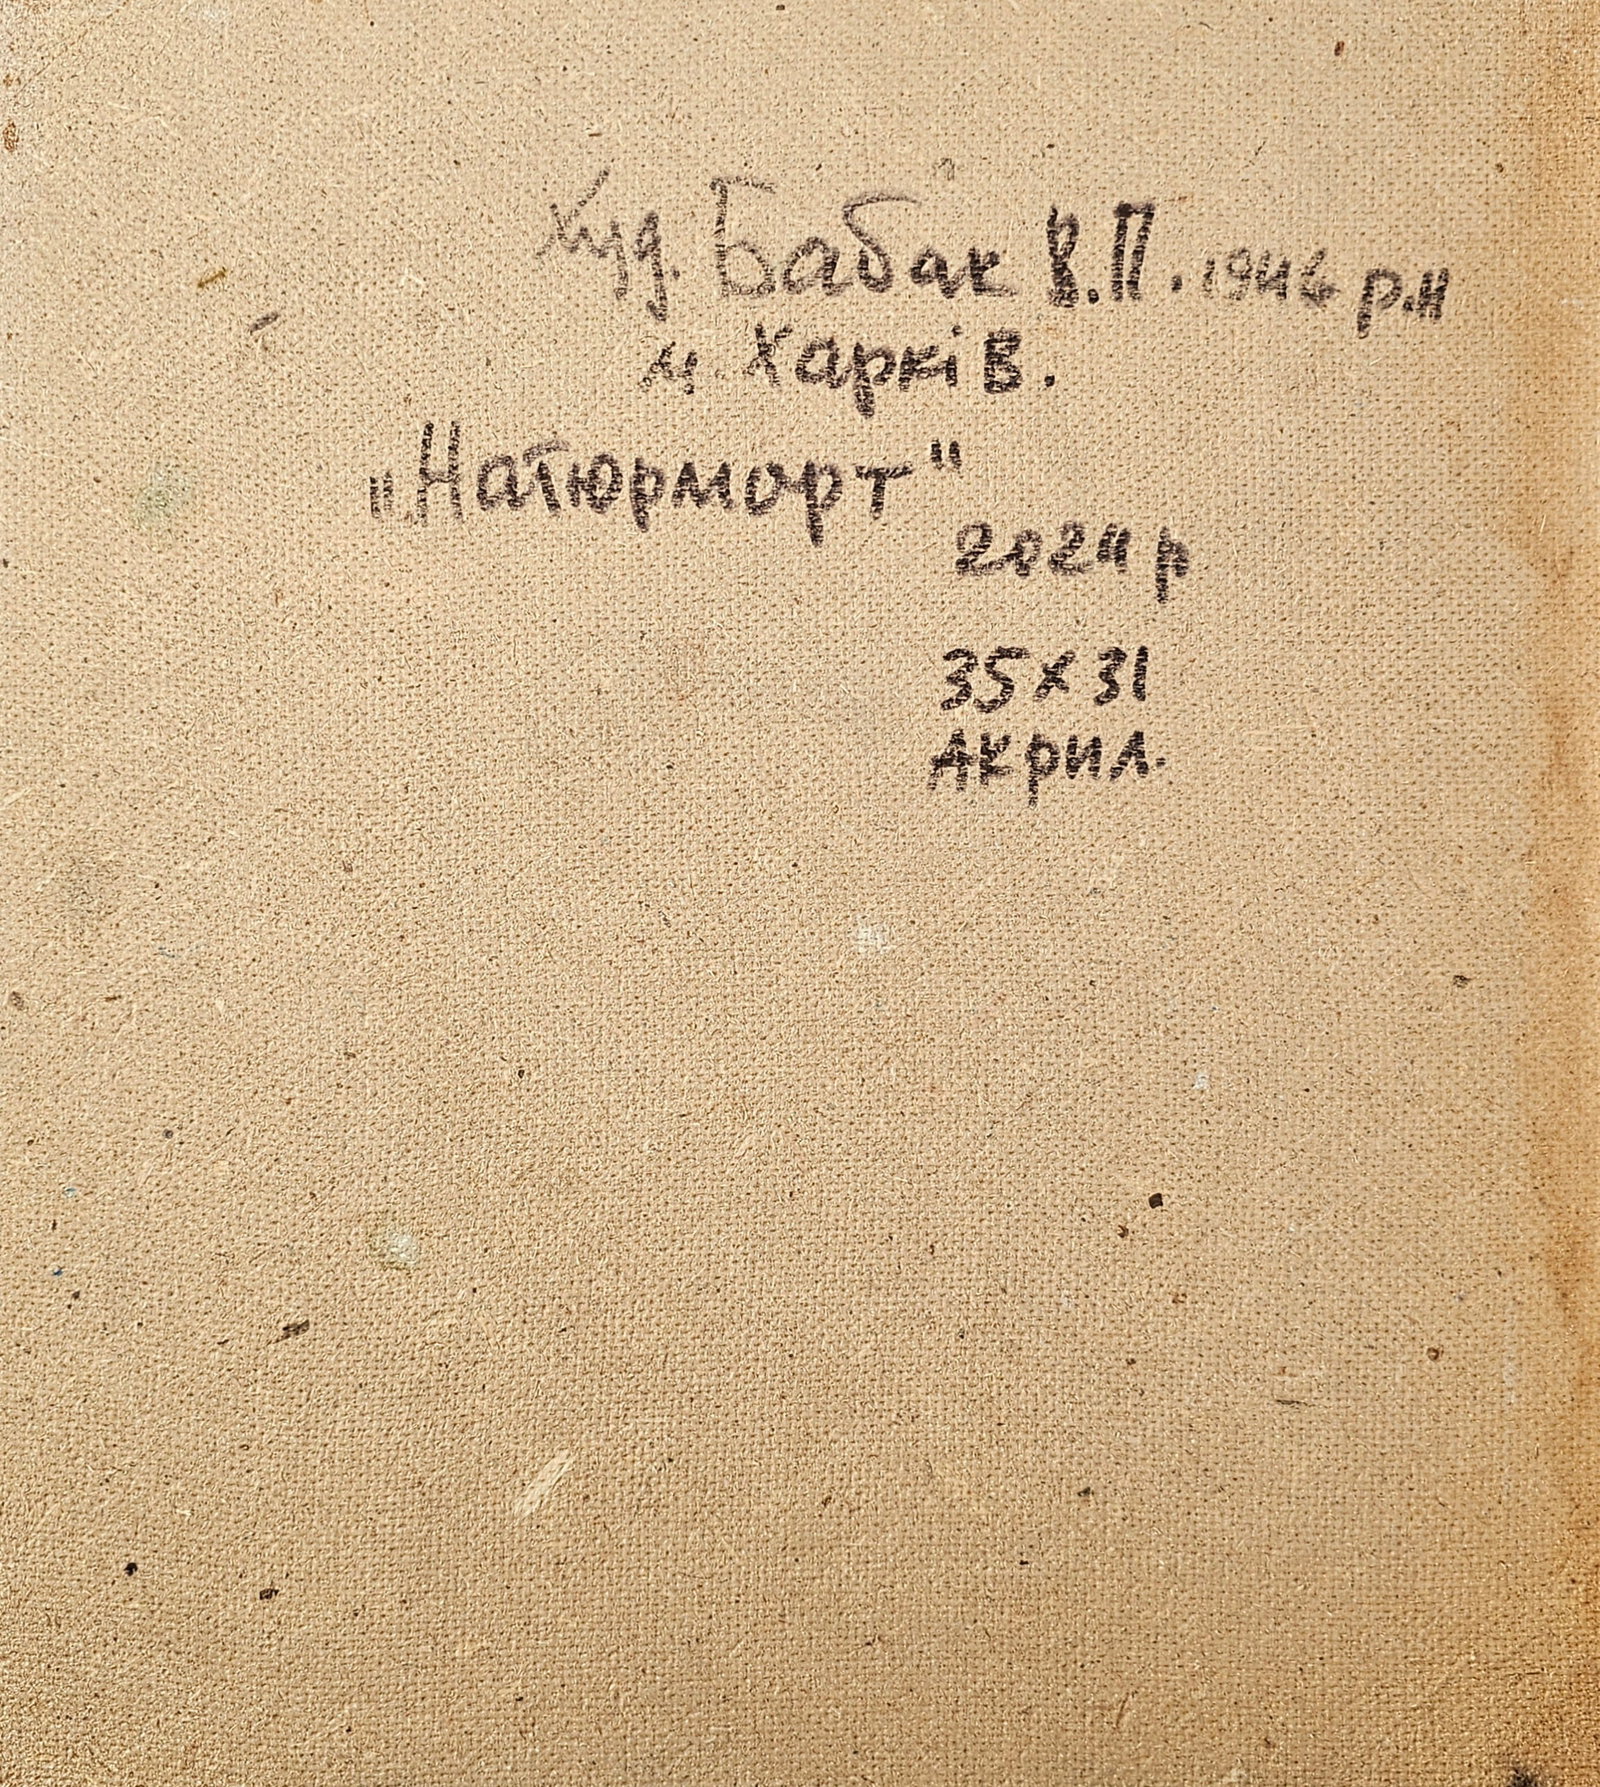 Худ. Бабак В.П. 1946 р.н
м. Харків.
"Натюрморт"
2024 р
35х31
Акрил.